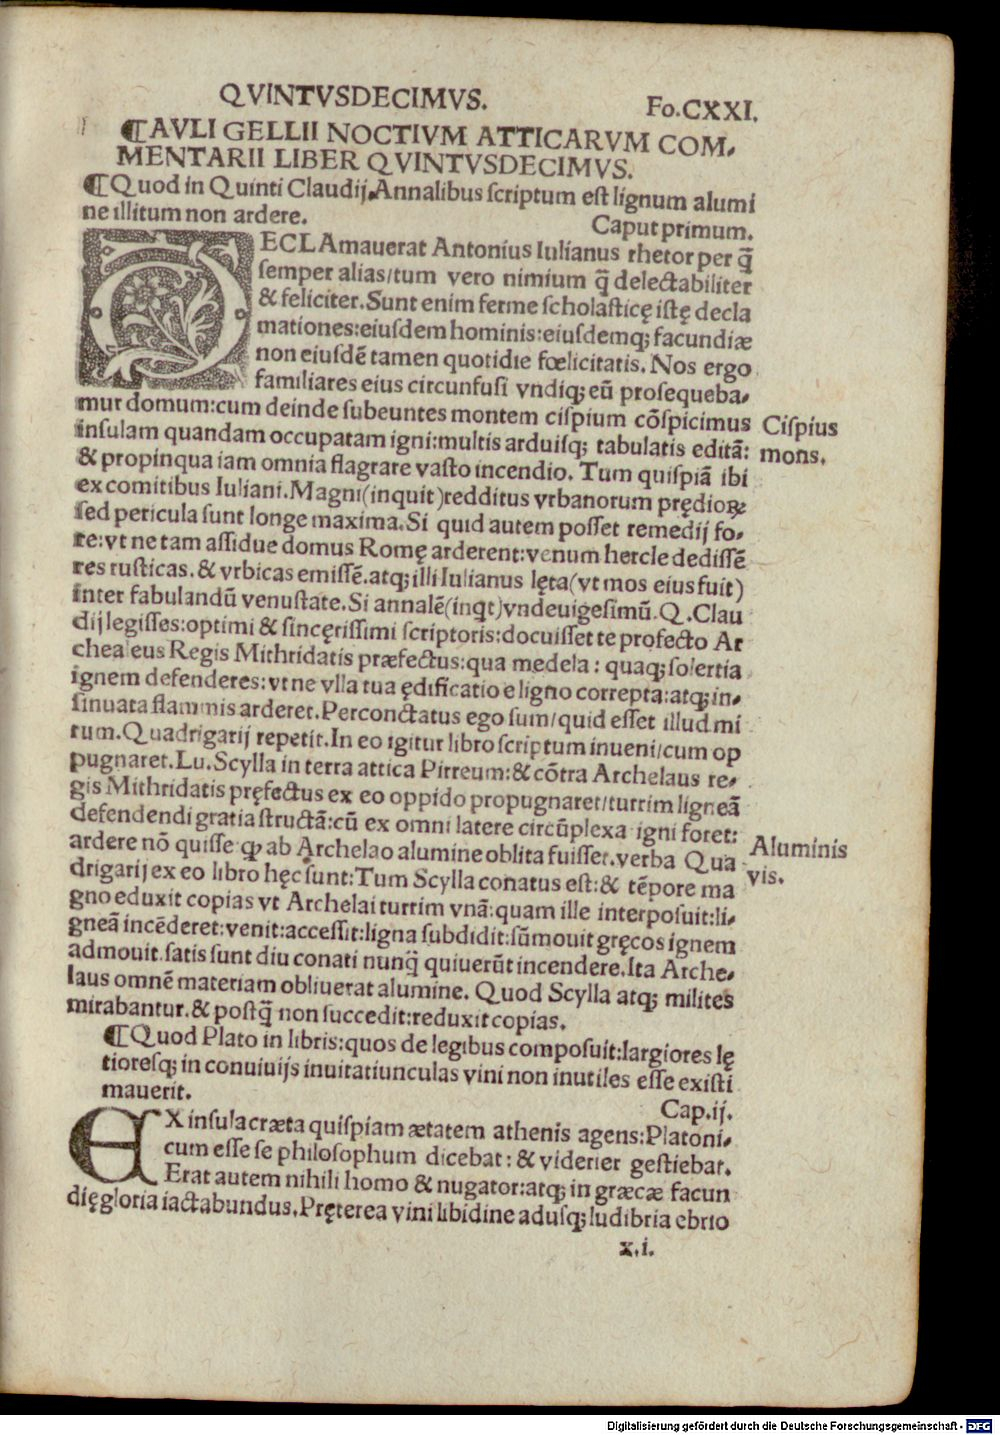 QVINTVSDECIMVS.
Fo.CXXI.
¶AVLI GELLII NOCTIVM ATTICARVM COM-
MENTARII LIBER QVINTVSDECIMVS.
¶Quod in Quinti Claudij.Annalibus ſcriptum eſt lignum alumi
ne illitum non ardere.
Caput primum.
DECLAmauerat Antonius Iulianus rhetor per q̃
ſemper alias/tum vero nimium q̃ delectabiliter
& feliciter.Sunt enim ferme ſcholaſticę iſtę decla
mationes:eiuſdem hominis:eiuſdemq; facundiæ
non eiuſdẽ tamen quotidie fœlicitatis. Nos ergo
familiares eius circunfuſi vndiq; eũ proſequeba-
mur domum:cum deinde ſubeuntes montem ciſpium cõſpicimus
inſulam quandam occupatam igni:multis arduiſq; tabulatis editã:
& propinqua iam omnia flagrare vaſto incendio. Tum quiſpiã ibi
ex comitibus Iuliani.Magni(inquit)redditus vrbanorum prędioꝝ
ſed pericula ſunt longe maxima.Si quid autem poſſet remedij fo-
re:vt ne tam aſſidue domus Romę arderent:venum hercle dediſſẽ
res ruſticas.& vrbicas emiſſẽ.atq; illi Iulianus lęta(vt mos eius fuit)
inter fabulandũ venuſtate.Si annalẽ(inqt)vndeuigeſimũ.Q.Clau
dij legiſſes:optimi & ſincęriſſimi ſcriptoris:docuiſſet te profecto Ar
chealeus Regis Mithridatis præfectus:qua medela: quaq; ſolertia
ignem defenderes:vt ne vlla tua ędificatio e ligno correpta:atq; in-
ſinuata flammis arderet.Percontactus ego ſum/quid eſſet illud mi
rum.Quadrigarij repetit.In eo igitur libro ſcriptum inueni/cum op
pugnaret.Lu.Scylla in terra attica Pirreum:& cõtra Archelaus re-
gis Mithridatis pręfectus ex eo oppido propugnaret/turrim ligneã
defendendi gratia ſtructã:cũ ex omni latere circũplexa igni foret:
ardere nõ quiſſe ꝙ ab Archelao alumine oblita fuiſſet.verba Qua
drigarij ex eo libro hęc ſunt:Tum Scylla conatus eſt:& tẽpore ma
gno eduxit copias vt Archelai turrim vnã:quam ille interpoſuit:li-
gneã incẽderet:venit:acceſſit:ligna ſubdidit:ſũmouit gręcos ignem
admouit.ſatis ſunt diu conati nunq̃ quiuerũt incendere.Ita Arche-
laus omnẽ materiam obliuerat alumine. Quod Scylla atq; milites
mirabantur.& poſtq̃ non ſuccedit:reduxit copias.
¶Quod Plato in libris:quos de legibus compoſuit:largiores lę
tioreſq; in conuiuijs inuitatiunculas vini non inutiles eſſe exiſti
mauerit.
Cap.ij.
EX inſula cræta quiſpiam ætatem athenis agens:Platoni-
cum eſſe ſe philoſophum dicebat: & viderier geſtiebat.
Erat autem nihili homo & nugator:atq; in græcæ facun
dię gloria iactabundus.Pręterea vini libidine aduſq; ludibria ebrio
x.i.
Ciſpius
mons.
Aluminis
vis.
Digitalisierung gefördert durch die Deutsche Forschungsgemeinschaft - DFG